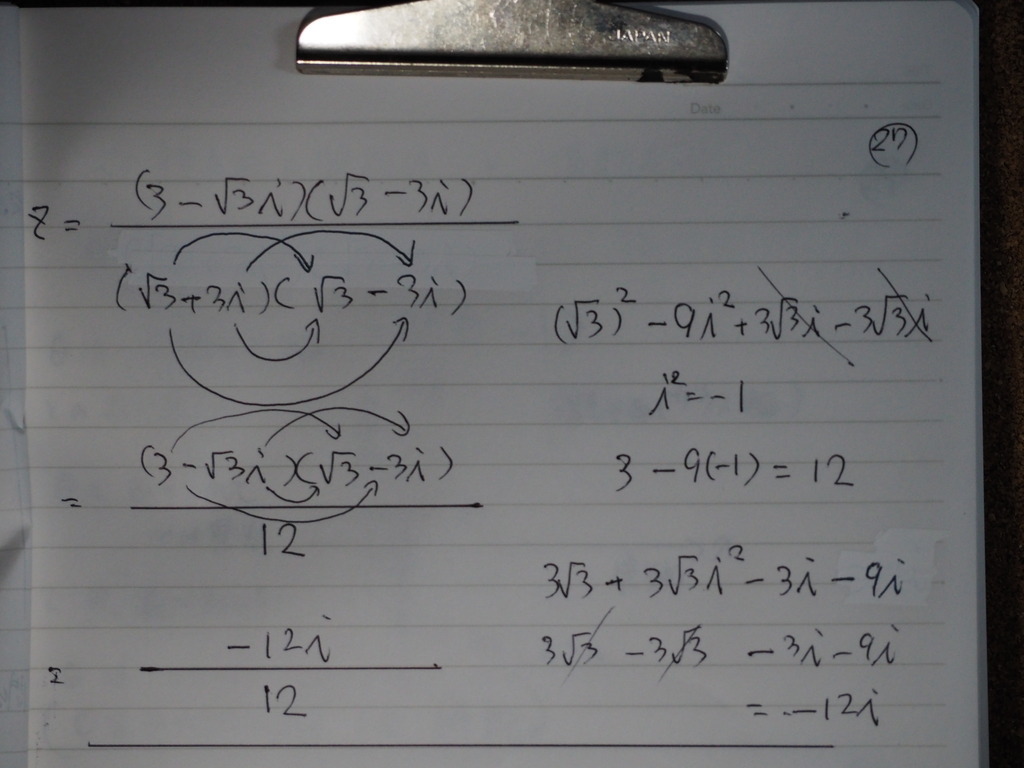 JAPAN
Date
27
z = (3 - √3i)(√3 - 3i)
(√3 + 3i)(√3 - 3i)
(√3)² - 9i² + 3√3i - 3√3i
i² = -1
= (3 - √3i)(√3 - 3i)
12
3 - 9(-1) = 12
3√3 + 3√3i² - 3i - 9i
3√3 - 3√3 - 3i - 9i
= -12i
= -12i
12